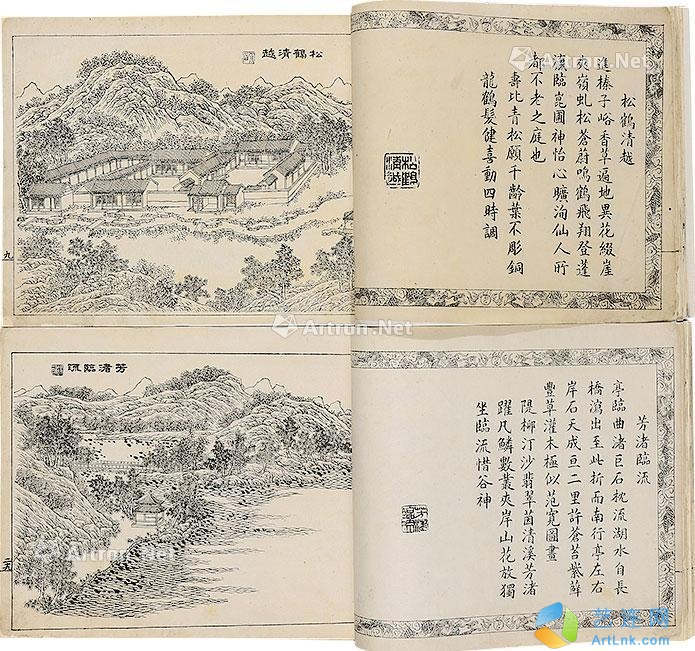 松鶴清越
進榛子峪香草遍地異花綴崖
夾嶺虬松蒼蔚鳴鶴飛翔登蓬
瀛臨崑圃神怡心曠洵仙人所
都不老之庭也
壽比青松願千齡葉不彫銅
龍鶴髮健喜動四時調
松鶴清越
九
芳渚臨流
亭臨曲渚巨石枕流湖水自長
橋瀉出至此折而南行亭左右
岸石天成亘二里許蒼苔紫蘚
豐草灌木極似范寬圖畫
隄柳汀沙翡翠茵清溪芳渚
躍凡鱗數叢夾岸山花放獨
坐臨流惜谷神
芳渚臨流
Artron.Net
Artron.Net
Artron.Net
Artron.Net
ArtLnk.com